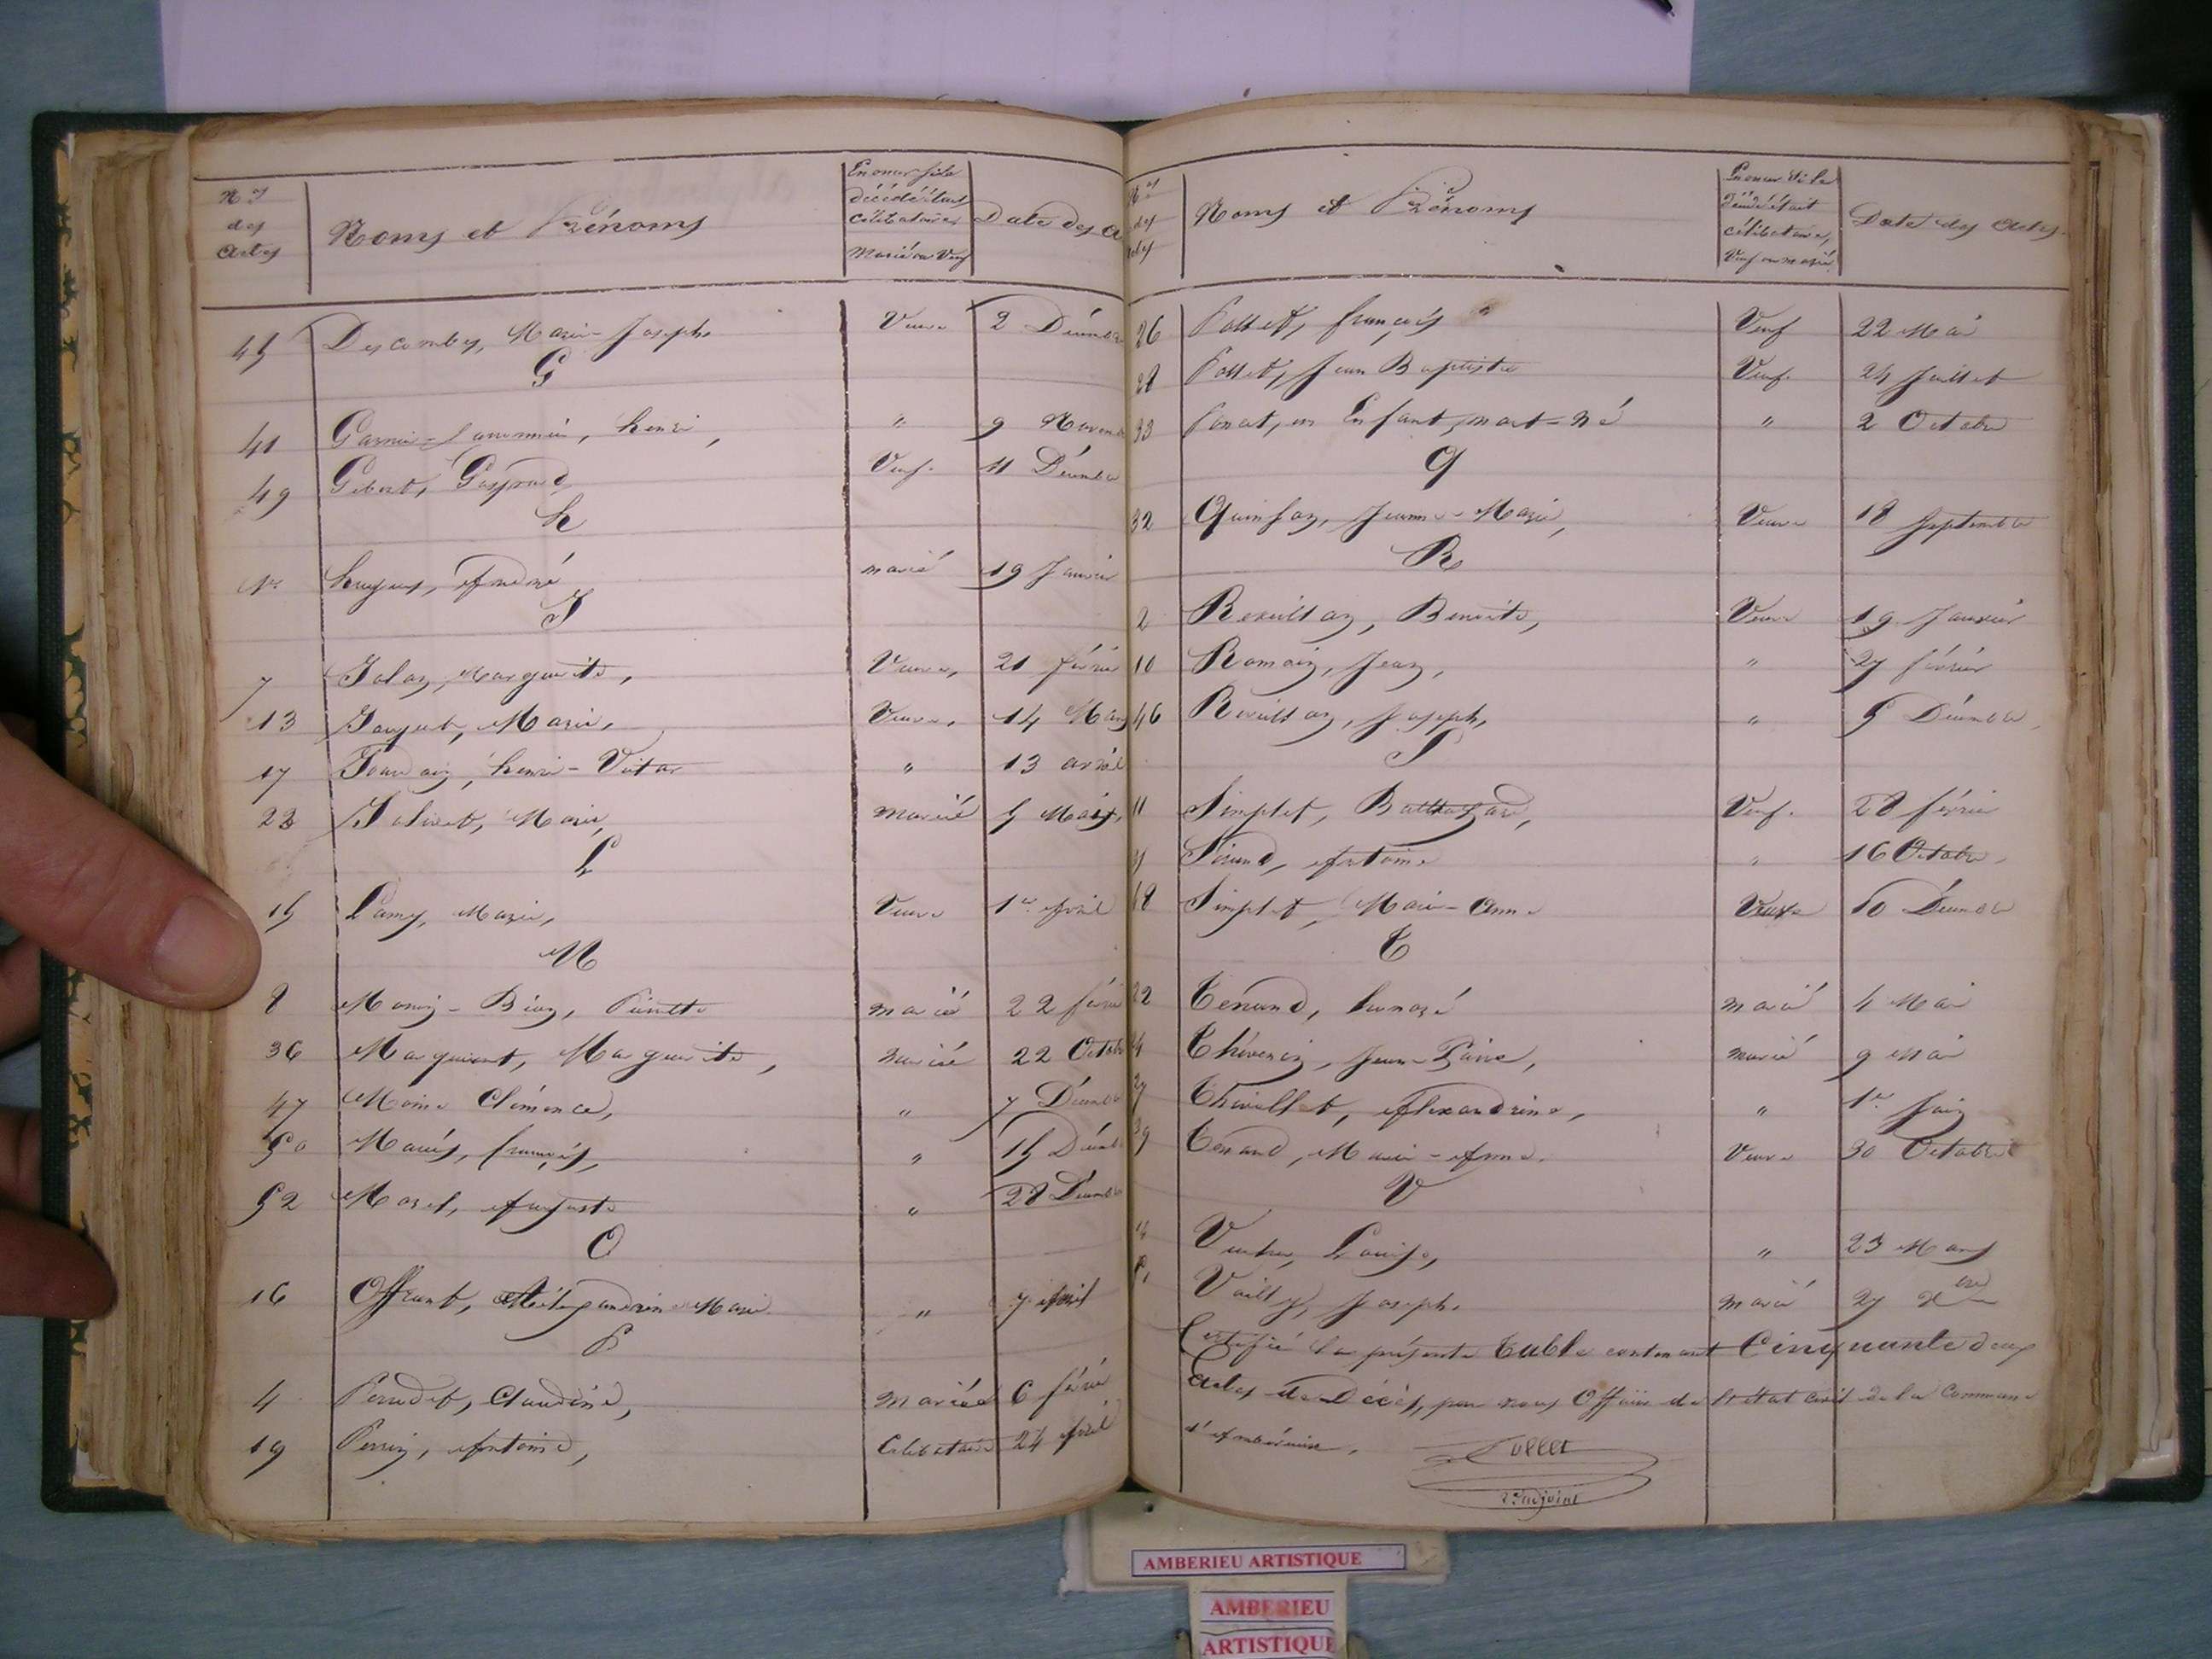 Nos des Actes
Noms et Prénoms
Enoncer si le décédé était célibataire, Marié ou Veuf
Date des A
45 Descombes, Marie-Josephe Veuve 2 Décembre
G
41 Garnier=, henri, " 9 Novemb
49 Gibert, Gaspard, Veuf. 11 Décembre
h
1er hugues, André marié 19 Janvier
J
7 Jolaz, Marguerite, Veuve, 21 février
13 Marie, Veuve, 14 Mars
17 Jourdain, henri-Victor " 13 avril
23 Jolivet, Marie, Mariée 5 Mai
L
15 Lamy, Marie, Veuve 1er Avril
M
8 Pierrette marié 22 février
36 Marguerite, Mariée 22 Octobre
47 Moine Clémence, " 7 Décembre
50 françois, " 15 Décembre
52 Morel, Auguste " 28 Décembre
O
16 Marie " 7 Avril
P
4 Perrodet, Claudine, Mariée 6 février
19 Perrin, Antoine, Célibataire 24 Avril
Nos des Actes
Noms et Prénoms
Enoncer si le décédé était célibataire, Veuf ou marié
Date des Actes.
26 Pollet, françois Veuf 22 Mai
28 Pollet, Jean Baptiste Veuf. 24 Juillet
33 un Enfant, mort=né " 2 Octobre
Q
32 Quinson, Jeanne-Marie, Veuve 18 Septembre
R
2 Benoite, Veuve 19 Janvier
10 Romain, Jean, " 27 février
46 Joseph, " 5 Décembre
S
11 Simplet, Balthazard, Veuf. 28 février
Antoine " 16 Octobre
Simplet, Marie-Anne Veuve 10 Décembre
T
22 Tenand, marié 4 Mai
24 Thévenin, Jean-Pierre, marié 9 Mai
27 Alexandrine, " 1er Juin
39 Tenand, Marie-Anne. Veuve 30 Octobre
V
14 Louise, " 23 Mars
Joseph. marié 27 Xbre
Certifié la présente Table contenant Cinquante deux
Actes de Décès, par nous Officier de l'état civil de la Commune
d'Ambérieu.
2e adjoint
AMBERIEU ARTISTIQUE
AMBERIEU
ARTISTIQUE